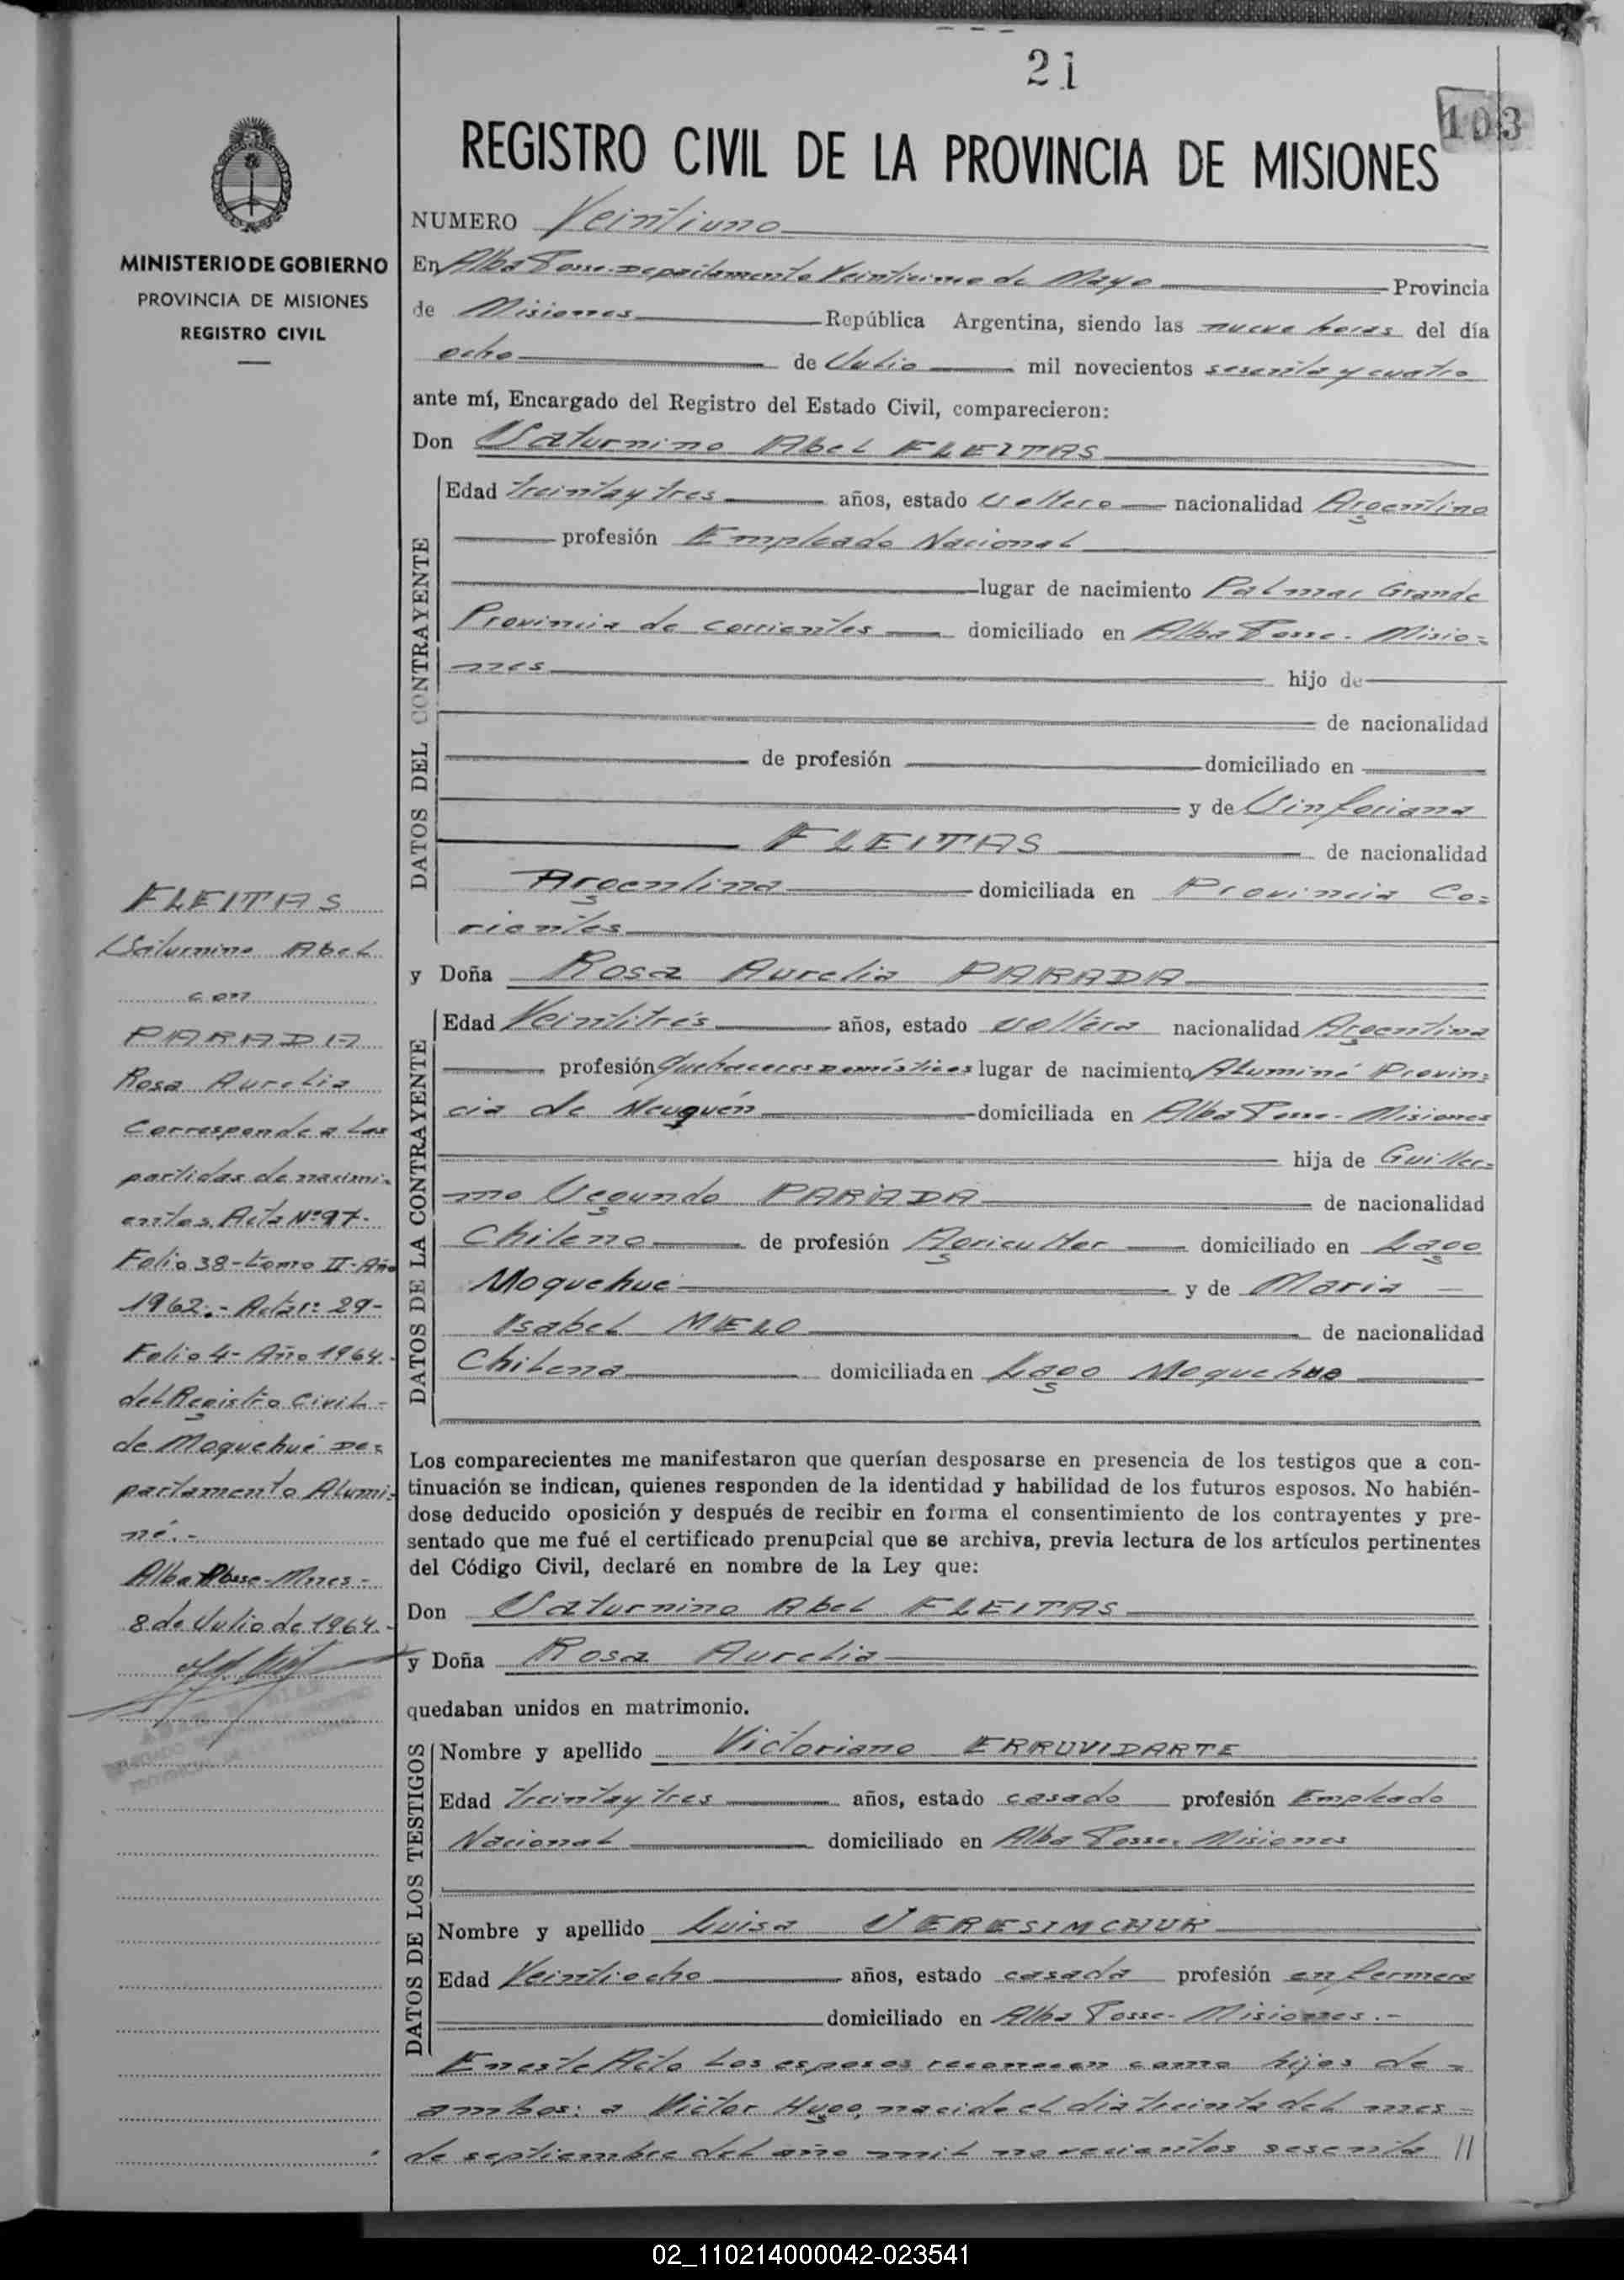 21
103
REGISTRO CIVIL DE LA PROVINCIA DE MISIONES
MINISTERIO DE GOBIERNO
PROVINCIA DE MISIONES
REGISTRO CIVIL
FLEITAS
Saturnino Abel
con
PARADA
Rosa Aurelia
Corresponde a las
partidas de nacimi-
entos. Acta Nº 97-
Folio 38-tomo II-Año
1962.- Acta nº 29-
Folio 4- Año 1964.
del Registro Civil-
de Moquehué De=
partamento Alumi=
né.-
Alba Posse-Mnes-
8 de Julio de 1964.-
NUMERO Veintiuno
En Alba Posse-Departamento Veinticinco de Mayo Provincia
de Misiones República Argentina, siendo las nueve horas del día
ocho de Julio mil novecientos sesenta y cuatro
ante mí, Encargado del Registro del Estado Civil, comparecieron:
Don Saturnino Abel FLEITAS
DATOS DEL CONTRAYENTE
Edad treinta y tres años, estado soltero nacionalidad Argentina
profesión Empleado Nacional
lugar de nacimiento Palmar Grande
Provincia de Corrientes domiciliado en Alba Posse- Misio=
nes hijo de
de nacionalidad
de profesión domiciliado en
y de Sinforiana
FLEITAS de nacionalidad
Argentina domiciliada en Provincia Co=
rientes
y Doña Rosa Aurelia PARADA
DATOS DE LA CONTRAYENTE
Edad Veintitrés años, estado soltera nacionalidad Argentina
profesión Quehaceres Domésticos lugar de nacimiento Aluminé Provin=
cia de Neuquén domiciliada en Alba Posse- Misiones
hija de Guiller=
mo Segundo PARADA de nacionalidad
Chileno de profesión Agricultor domiciliado en Lago
Moquehue y de Maria
Isabel de nacionalidad
Chilena domiciliada en Lago Moquehue
Los comparecientes me manifestaron que querían desposarse en presencia de los testigos que a con-
tinuación se indican, quienes responden de la identidad y habilidad de los futuros esposos. No habién-
dose deducido oposición y después de recibir en forma el consentimiento de los contrayentes y pre-
sentado que me fué el certificado prenupcial que se archiva, previa lectura de los artículos pertinentes
del Código Civil, declaré en nombre de la Ley que:
Don Saturnino Abel FLEITAS
y Doña Rosa Aurelia
quedaban unidos en matrimonio.
DATOS DE LOS TESTIGOS
Nombre y apellido Victoriano ERRUVIDARTE
Edad treinta y tres años, estado casado profesión Empleado
Nacional domiciliado en Alba Posse- Misiones
Nombre y apellido Luisa SERESIMCHUK
Edad Veintiocho años, estado casada profesión enfermera
domiciliado en Alba Posse- Misiones.-
En este Acto los esposos reconocen como hijos de =
ambos: a Victor Hugo, nacido el dia treinta del mes =
de septiembre del año mil novecientos sesenta //
02_110214000042-023541